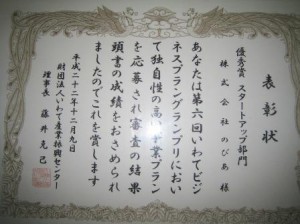 表彰状
優秀賞 スタートアップ部門
株式会社のびあ様
あなたは第六回いわてビジ
ネスプラングランプリにおい
て独自性の高い事業プラン
を応募され審査の結果
頭書の成績をおさめられ
ましたのでこれを賞します
平成二十二年十二月九日
財団法人いわて産業振興センター
理事長 藤井克己